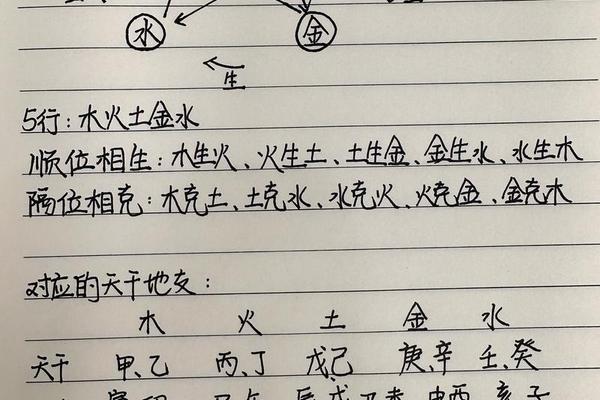 水 金
生
5行：木火土金水
顺位相生：木生火、火生土、土生金、金生水、水生木
隔位相克：木克土、土克水、水克火、火克金、金克木
对应的天干地支：
木 火 土 金 水
天干 甲、乙 丙、丁 戊、己 庚、辛 壬、癸